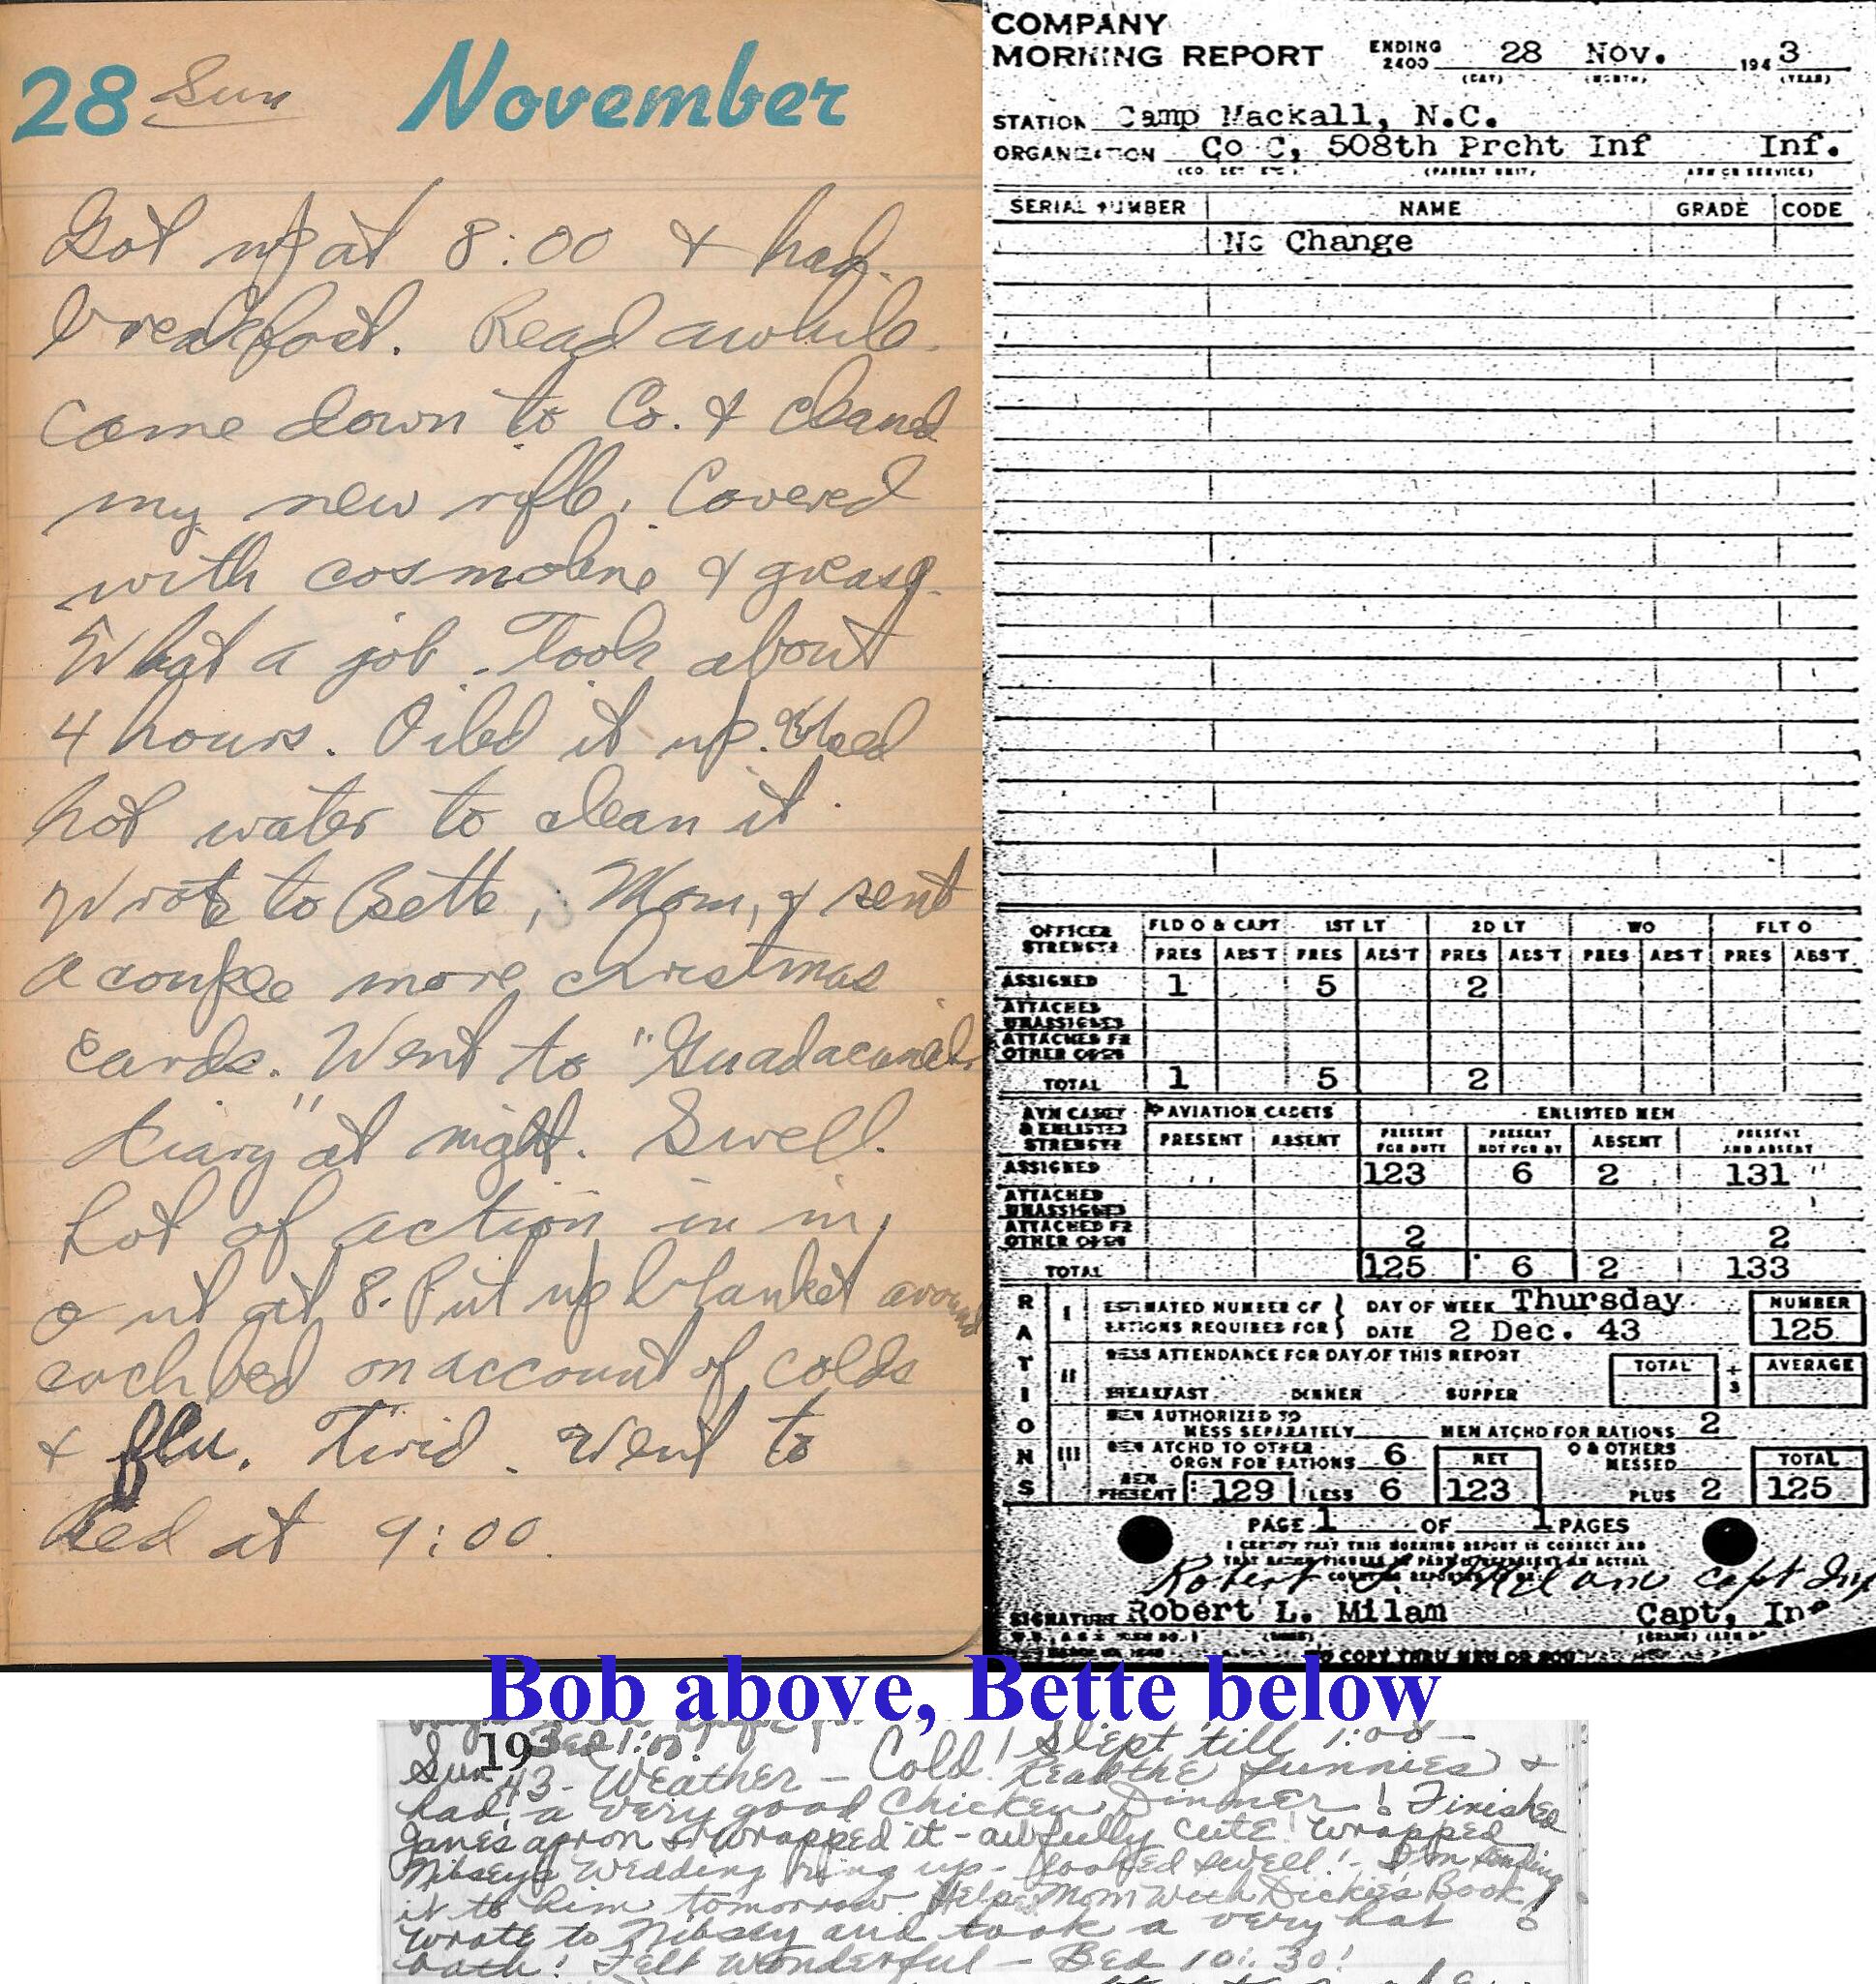 28 Sun November
Got up at 8:00 & had
breakfast. Read awhile.
Came down to Co. & cleaned
my new rifle. Covered
with cosmoline & grease.
What a job. Took about
4 hours. Oiled it up. Used
hot water to clean it.
Wrote to Bette, Mom, & sent
a couple more christmas
cards. Went to "Guadacanal
Diary" at night. Swell.
Lot of action in in,
out at 8. Put up blanket around
each bed on account of colds
& flu. Tired. Went to
bed at 9:00.
COMPANY
MORNING REPORT ENDING 2400 28 Nov. 1943
(DAY) (MONTH) (YEAR)
STATION Camp Mackall, N.C.
ORGANIZATION Co C, 508th Prcht Inf Inf.
(CO. DET. ETC.) (PARENT UNIT) (ARM OR SERVICE)
SERIAL NUMBER NAME GRADE CODE
No Change
OFFICER STRENGTH FLD O & CAPT 1ST LT 2D LT WO FLT O
PRES ABS'T PRES ABS'T PRES ABS'T PRES ABS'T PRES ABS'T
ASSIGNED 1 5 2
ATTACHED UNASSIGNED
ATTACHED FR OTHER ORGN
TOTAL 1 5 2
AVN CADET & ENLISTED STRENGTH AVIATION CADETS ENLISTED MEN
PRESENT ABSENT PRESENT FOR DUTY PRESENT NOT FOR DY ABSENT PRESENT AND ABSENT
ASSIGNED 123 6 2 131
ATTACHED UNASSIGNED
ATTACHED FR OTHER ORGN 2 2
TOTAL 125 6 2 133
RATIONS
I ESTIMATED NUMBER OF RATIONS REQUIRED FOR DAY OF WEEK Thursday NUMBER
DATE 2 Dec. 43 125
II MESS ATTENDANCE FOR DAY OF THIS REPORT TOTAL ÷ 3 AVERAGE
BREAKFAST DINNER SUPPER
III MEN AUTHORIZED TO MESS SEPARATELY MEN ATCHD FOR RATIONS 2
MEN ATCHD TO OTHER ORGN FOR RATIONS 6 NET O & OTHERS MESSED TOTAL
MEN PRESENT 129 LESS 6 123 PLUS 2 125
PAGE 1 OF 1 PAGES
I CERTIFY THAT THIS MORNING REPORT IS CORRECT AND
Robert L. Milam Capt Inf
SIGNATURE Robert L. Milam Capt, Inf
Bob above, Bette below
Bed 1:00!
Sun 1943 - Weather - Cold! Slept till 1:00 -
Read the funnies &
had a very good Chicken Dinner! Finished
Jane's apron & wrapped it - awfully cute! Wrapped
Nibsey's Wedding ring up - looked swell! - I'm sending
it to him tomorrow. Help Mom with Dickie's Book!
Wrote to Nibsey and took a very hot
bath! Felt Wonderful - Bed 10:30!